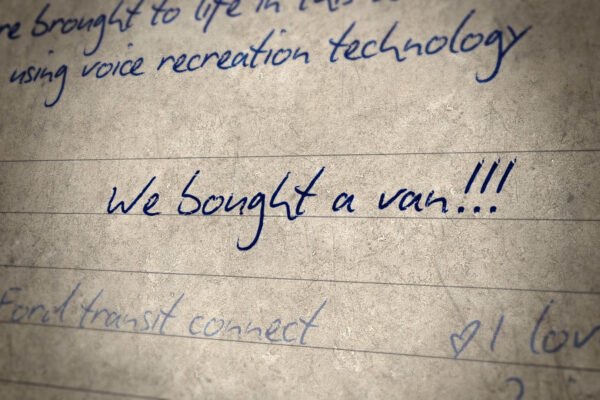 re brought to life in this
using voice recreation technology
We bought a van!!!
Ford transit connect ♡ I lov